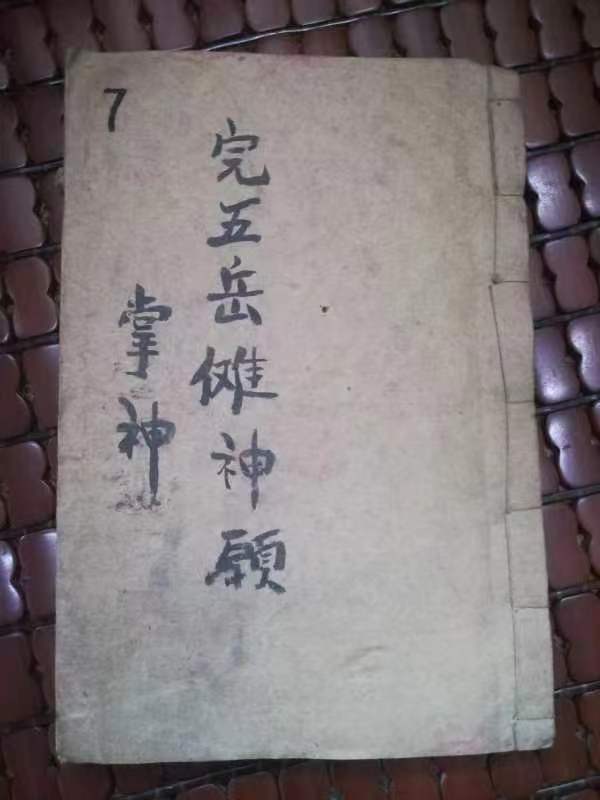 完五岳傩神願
掌神
7